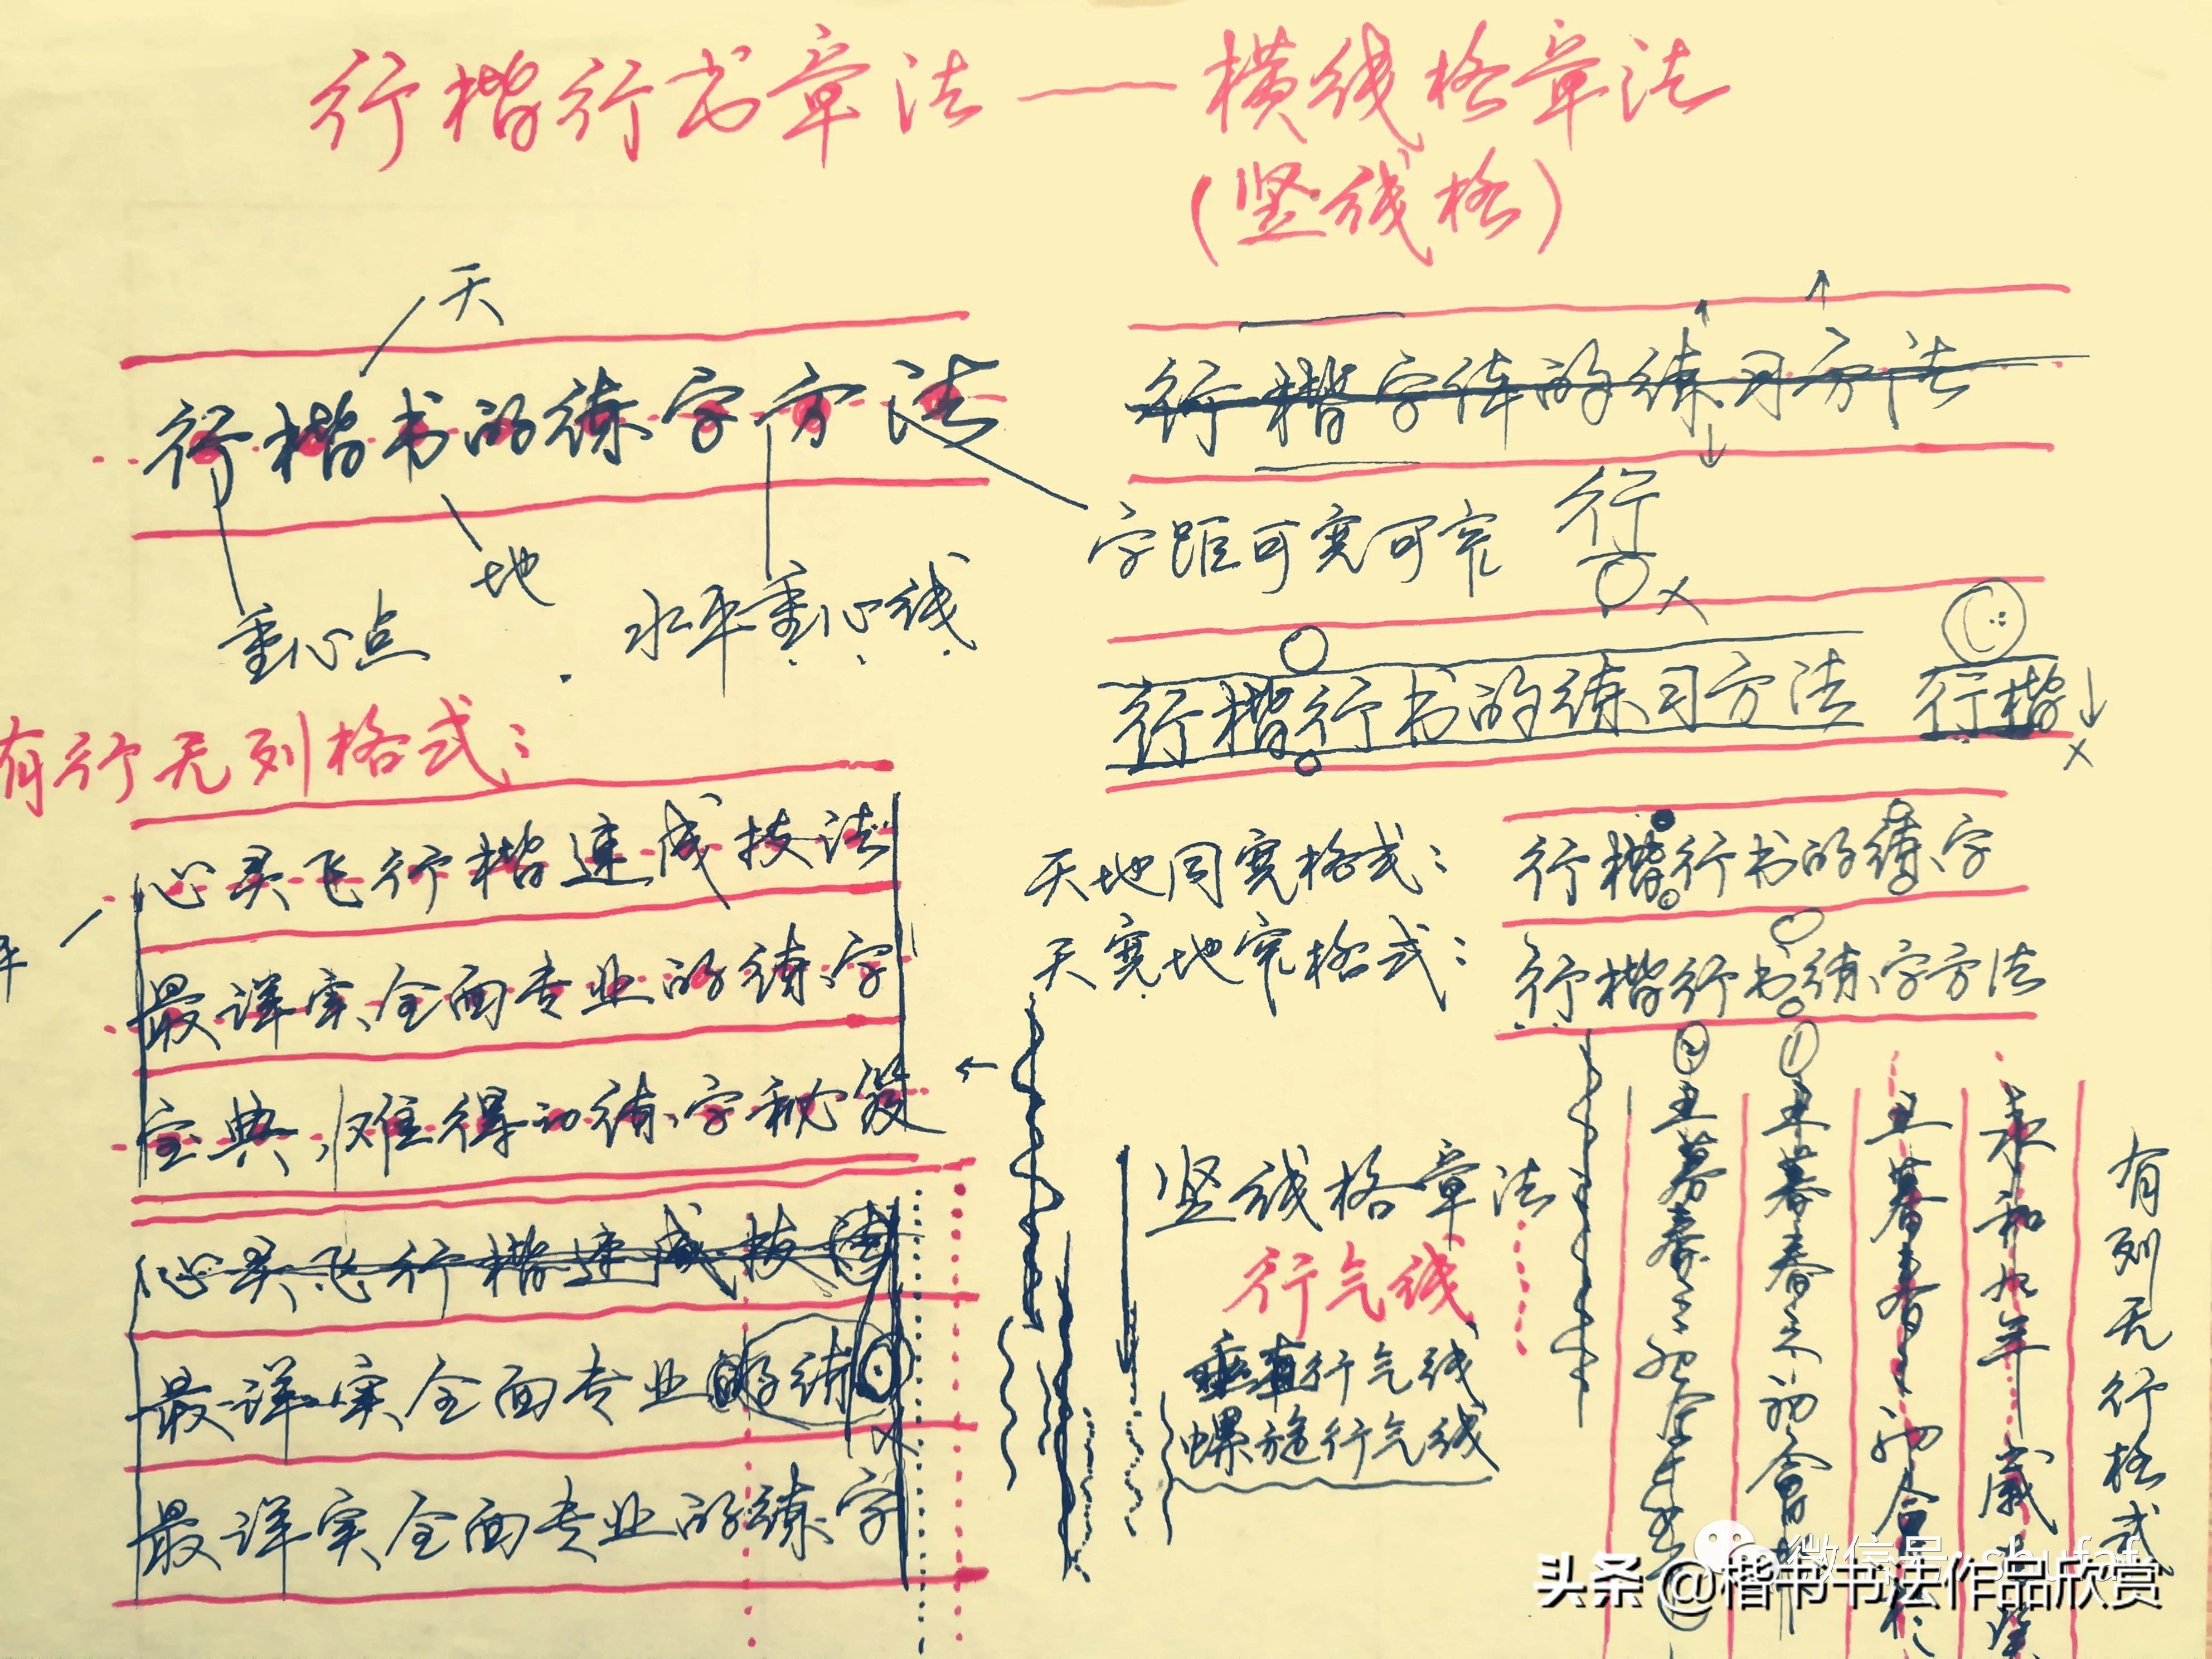 行楷行书章法——横线格章法
(竖线格)
天
行楷书的练字方法
地
重心点
水平重心线
行楷字体的练习方法
字距可宽可窄
行
行楷行书的练习方法
行楷
有行无列格式：
心灵飞行楷速成技法
最详实全面专业的练字
宝典，难得的练字秘笈
心灵飞行楷速成技法
最详实全面专业的练
最详实全面专业的练字
天地同宽格式：
天宽地窄格式：
行楷行书的练字
行楷行书练字方法
竖线格章法
行气线
垂直行气线
螺旋行气线
有列无行格式
永和九年岁
丑暮春之初会
① 丑暮春之初会
② 丑暮春之初
微信号: shufaf
头条 @楷书书法作品欣赏